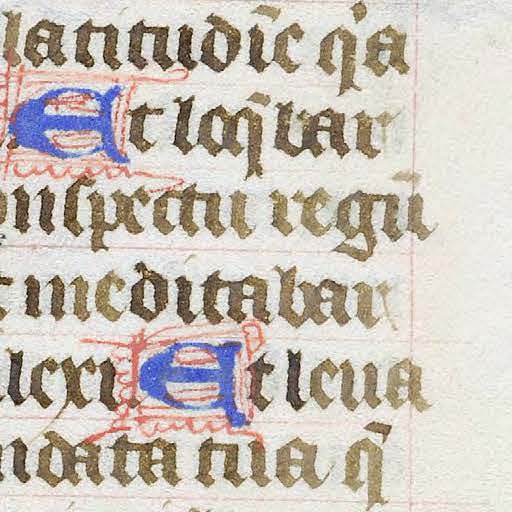 latitudīe q̇a
Et loq̄bar
onspectu regū
t meditabar
lexi. Et leua
ndata tua q̄